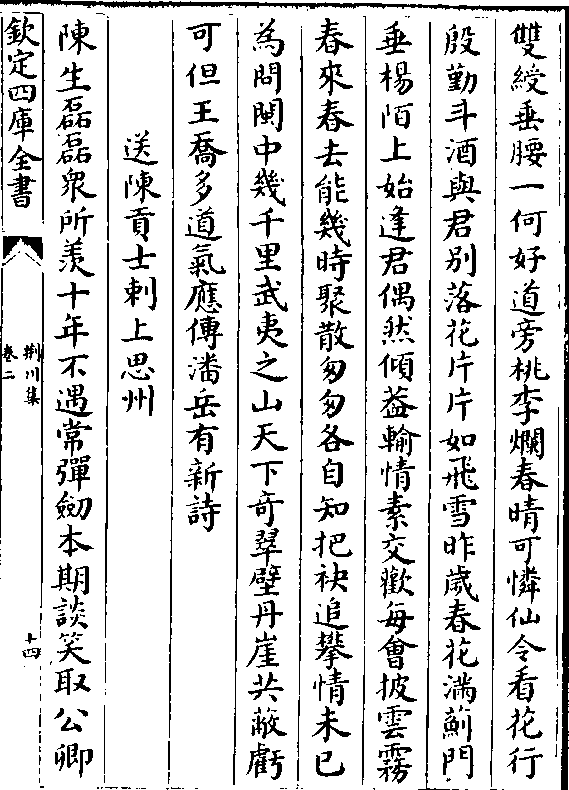 雙綬垂腰一何好道旁桃李爛春晴可憐仙令看花行
殷勤斗酒與君别落花片片如飛雪昨歲春花滿薊門
垂楊陌上始逢君偶然傾葢輸情素交歡每會披雲霧
春來春去能幾時聚散匆匆各自知把袂追攀情未已
為問閩中幾千里武夷之山天下奇翠壁丹崖共蔽虧
可但王喬多道氣應傳潘岳有新詩
送陳貢士刺上思州
陳生磊磊衆所羨十年不遇常彈劒本期談笑取公卿
欽定四庫全書
荆川集
卷二
十四